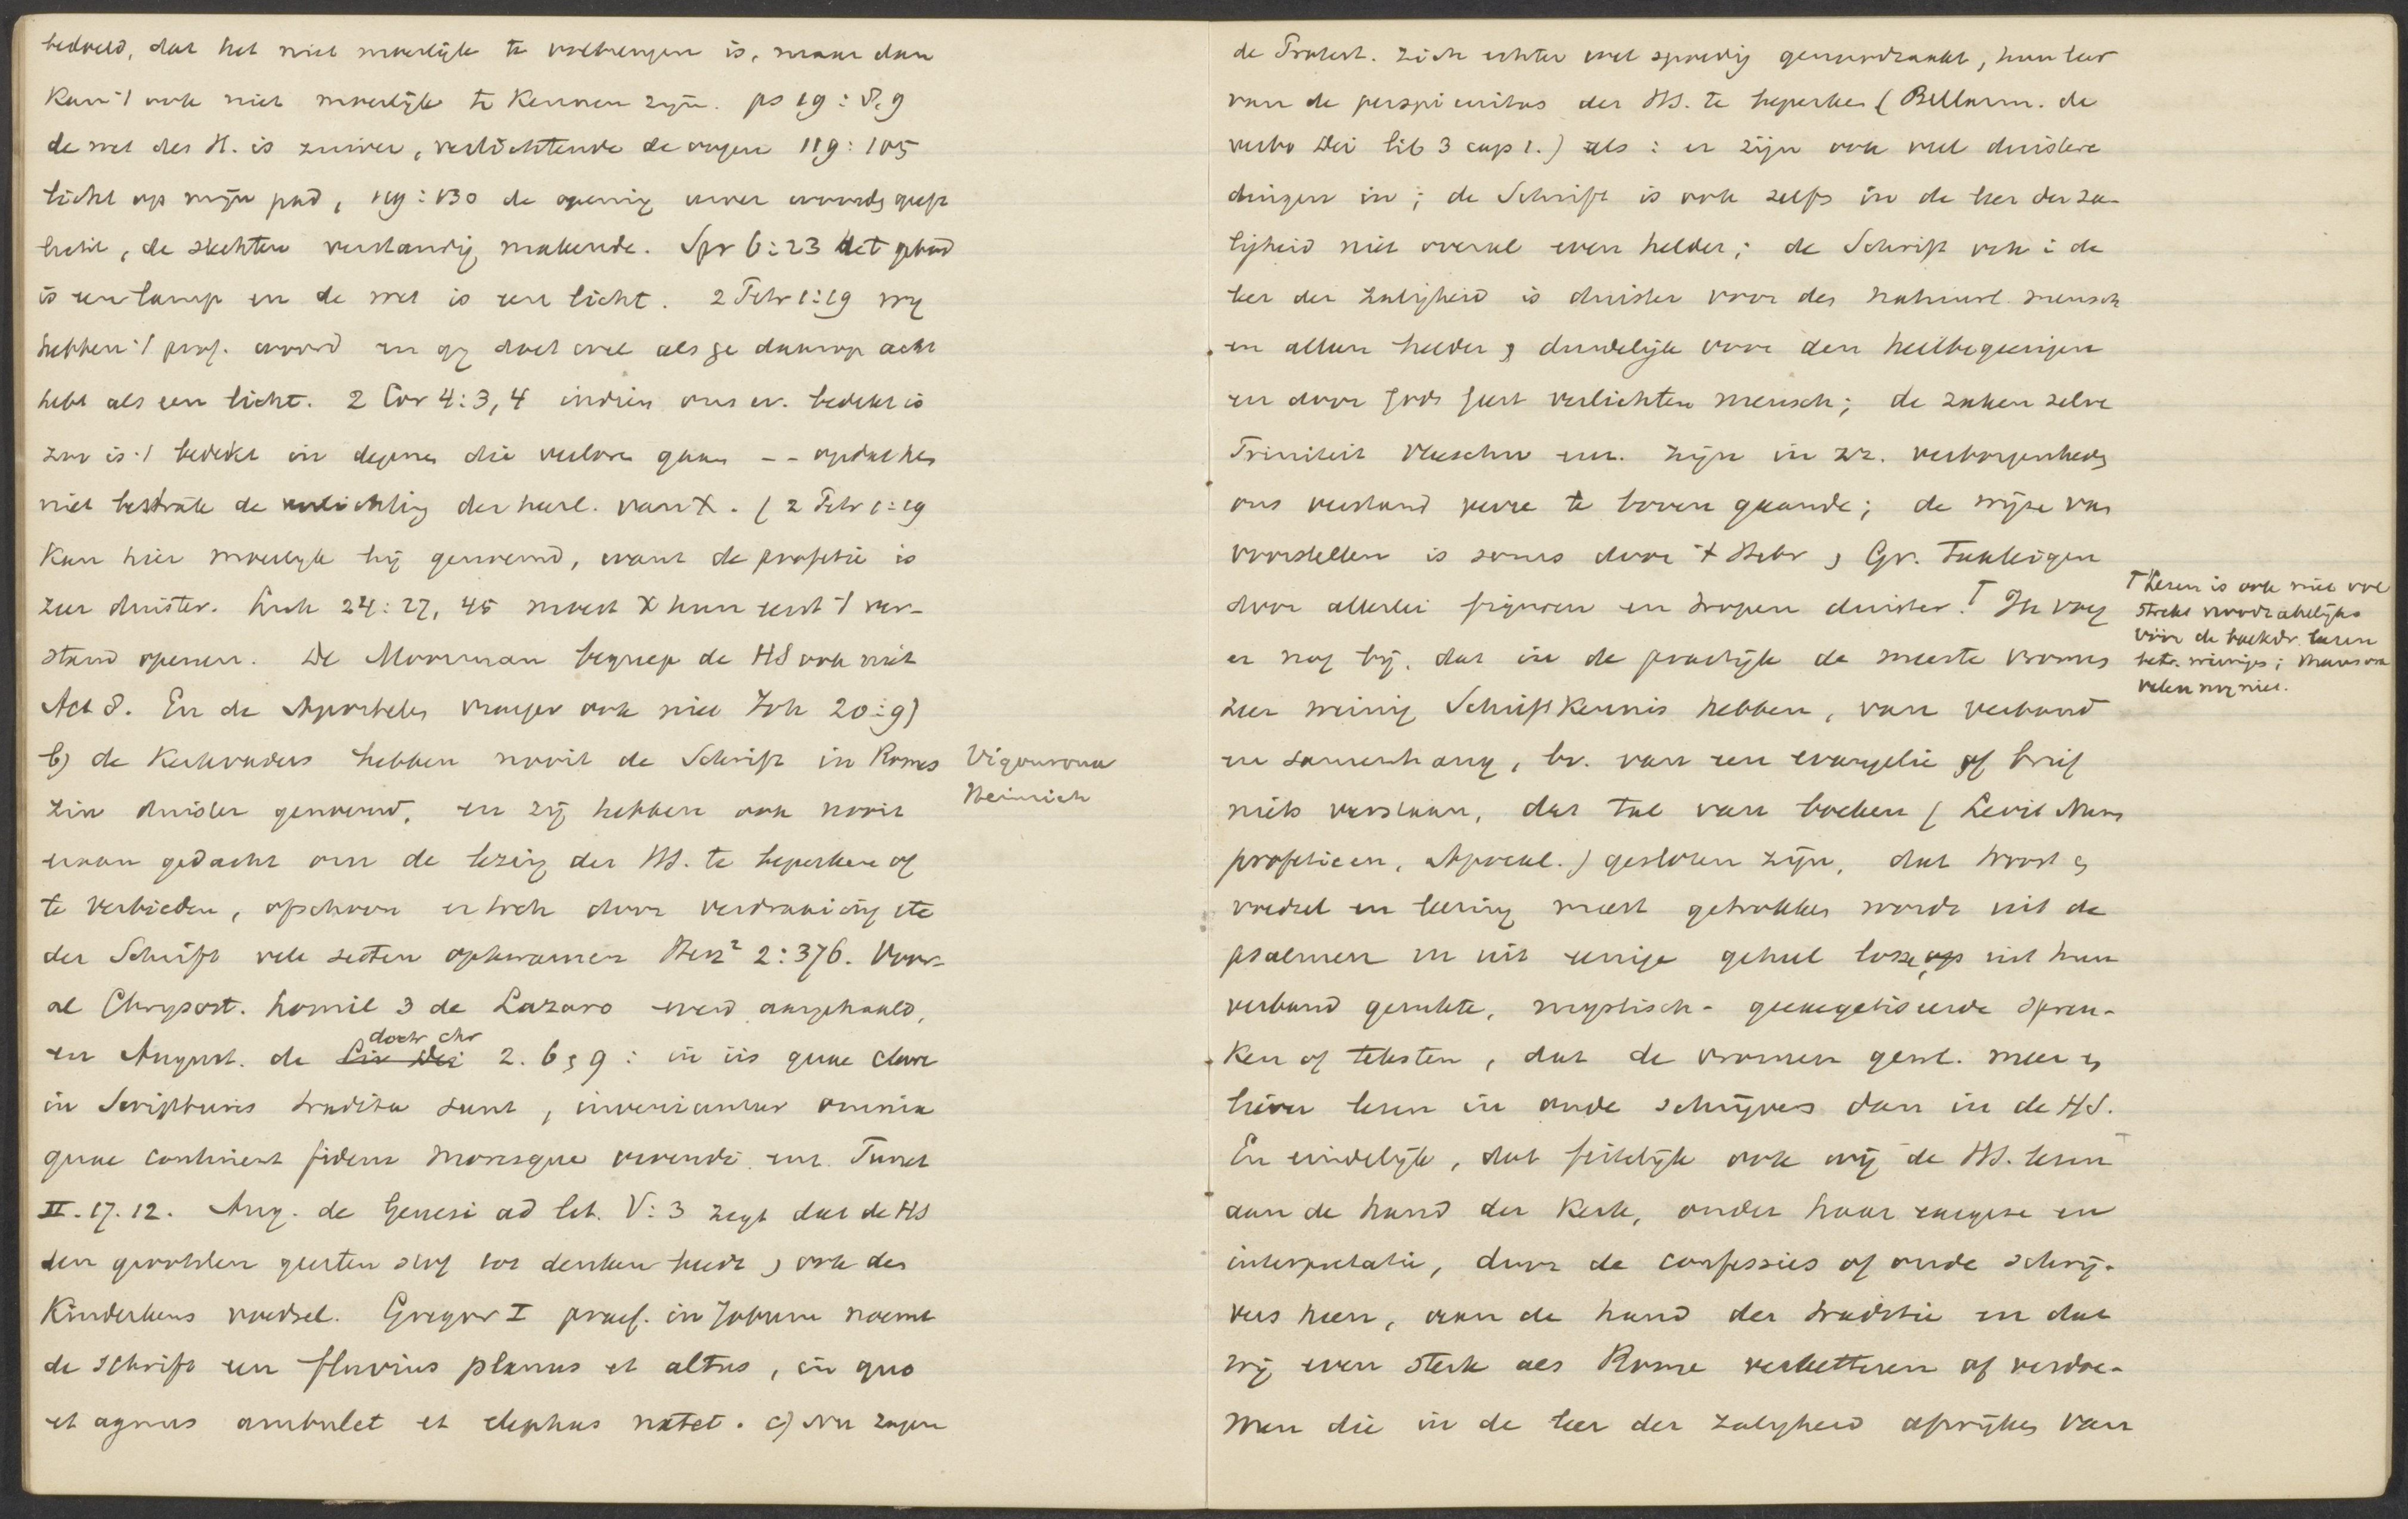 bedoeld, dat het niet moeilijk te volbrengen is, maar dan
kan 't ook niet moeilijk te kennen zijn. ps 19: 8, 9
de wet des H. is zuiver, verlichtende de oogen 119: 105
licht op mijn pad, 119: 130 de opening uwer woorden geeft
licht, de slechten verstandig makende. Spr 6: 23 het gebod
is een lamp en de wet is een licht. 2 Petr 1: 19 wij
hebben 't prof. woord en gij doet wel als ge daarop acht
hebt als een licht. 2 Cor 4: 3, 4 indien ons ev. bedekt is
zoo is 't bedekt in degenen die verloren gaan -- opdat hen
niet bestrale de verlichting der heerl. van X. ( 2 Petr 1: 19
kan hier moeilijk bij genoemd, want de profetie is
zeer duister. Luk 24: 27, 45 moest X hun eerst 't ver-
stand openen. De Moorman begreep de HS ook niet
Act 8. En de Apostelen vroeger ook niet Joh 20: 9)
b) de Kerkvaders hebben nooit de Schrift in Roomsche
zin duister genoemd, en zij hebben ook nooit
eraan gedacht om de lezing der HS. te beperken of
te verbieden, ofschoon er toch door verdraaiing etc
der Schrift vele secten opkwamen Herz² 2: 376. Voor-
al Chrysost. homil 3 de Lazaro werd aangehaald,
doctr chr
en August. de Civ Dei 2. 6, 9: in iis quae clare
in Scripturis tradita sunt, inveniuntur omnia
quae continent fidem moresque vivendi enz. Turret
II. 17. 12. Aug. de Genesi ad lit. V: 3 zegt dat de HS
den grootsten geesten stof tot denken biedt, ook den
Kinderkens voedsel. Gregor I praef. in Jobum noemt
de schrift een fluvius planus et altus, in quo
et agnus ambulet et elephas natet. c) Nu zagen
Vigouroux
Heinrich
de Protest. zich echter wel spoedig genoodzaakt, hun leer
van de perspicuitas der HS. te beperken (Bellarm. de
verbo Dei lib 3 cap 1.) als: er zijn ook veel duistere
dingen in; de Schrift is ook zelfs in de leer der za-
ligheid niet overal even helder; de Schrift ook i de
leer der zaligheid is duister voor den natuurl. mensch
en alleen helder, duidelijk voor den heilbegeerigen
en door Gods Geest verlichten mensch; de zaken zelve
Triniteit vleeschw enz. zijn in zz. verborgenheden
ons verstand verre te boven gaande; de wijze van
voorstellen is soms door 't Hebr, Gr. Taaleigen
door allerlei figuren en tropen duister.† Ik voeg
er nog bij, dat in de practijk de meeste vromen
zeer weinig Schriftkennis hebben, van verband
en samenhang, bv. van een evangelie of brief
niets verstaan, dat tal van boeken (Levit Num
profetieen, Apocal.) gesloten zijn, dat troost en
voedsel en leering meest getrokken wordt uit de
psalmen en uit eenige geheel losse, uit hun
verband gerukte, mystisch-geexegetiseerde spreu-
ken of teksten, dat de vromen gewl. meer en
liever lezen in oude schrijvers dan in de HS.
En eindelijk, dat feitelijk ook wij de HS. lezen
aan de hand der Kerk, onder haar exegese en
interpretatie, door de confessies of oude schrij-
vers heen, aan de hand der traditie en dat
wij even sterk als Rome verketteren of verdoe-
men die in de leer der zaligheid afwijken van
† Lezen is ook niet vol
strekt noodzakelijk
vóór de boekdr. lazen
betr. weinigen;
velen nog niet.